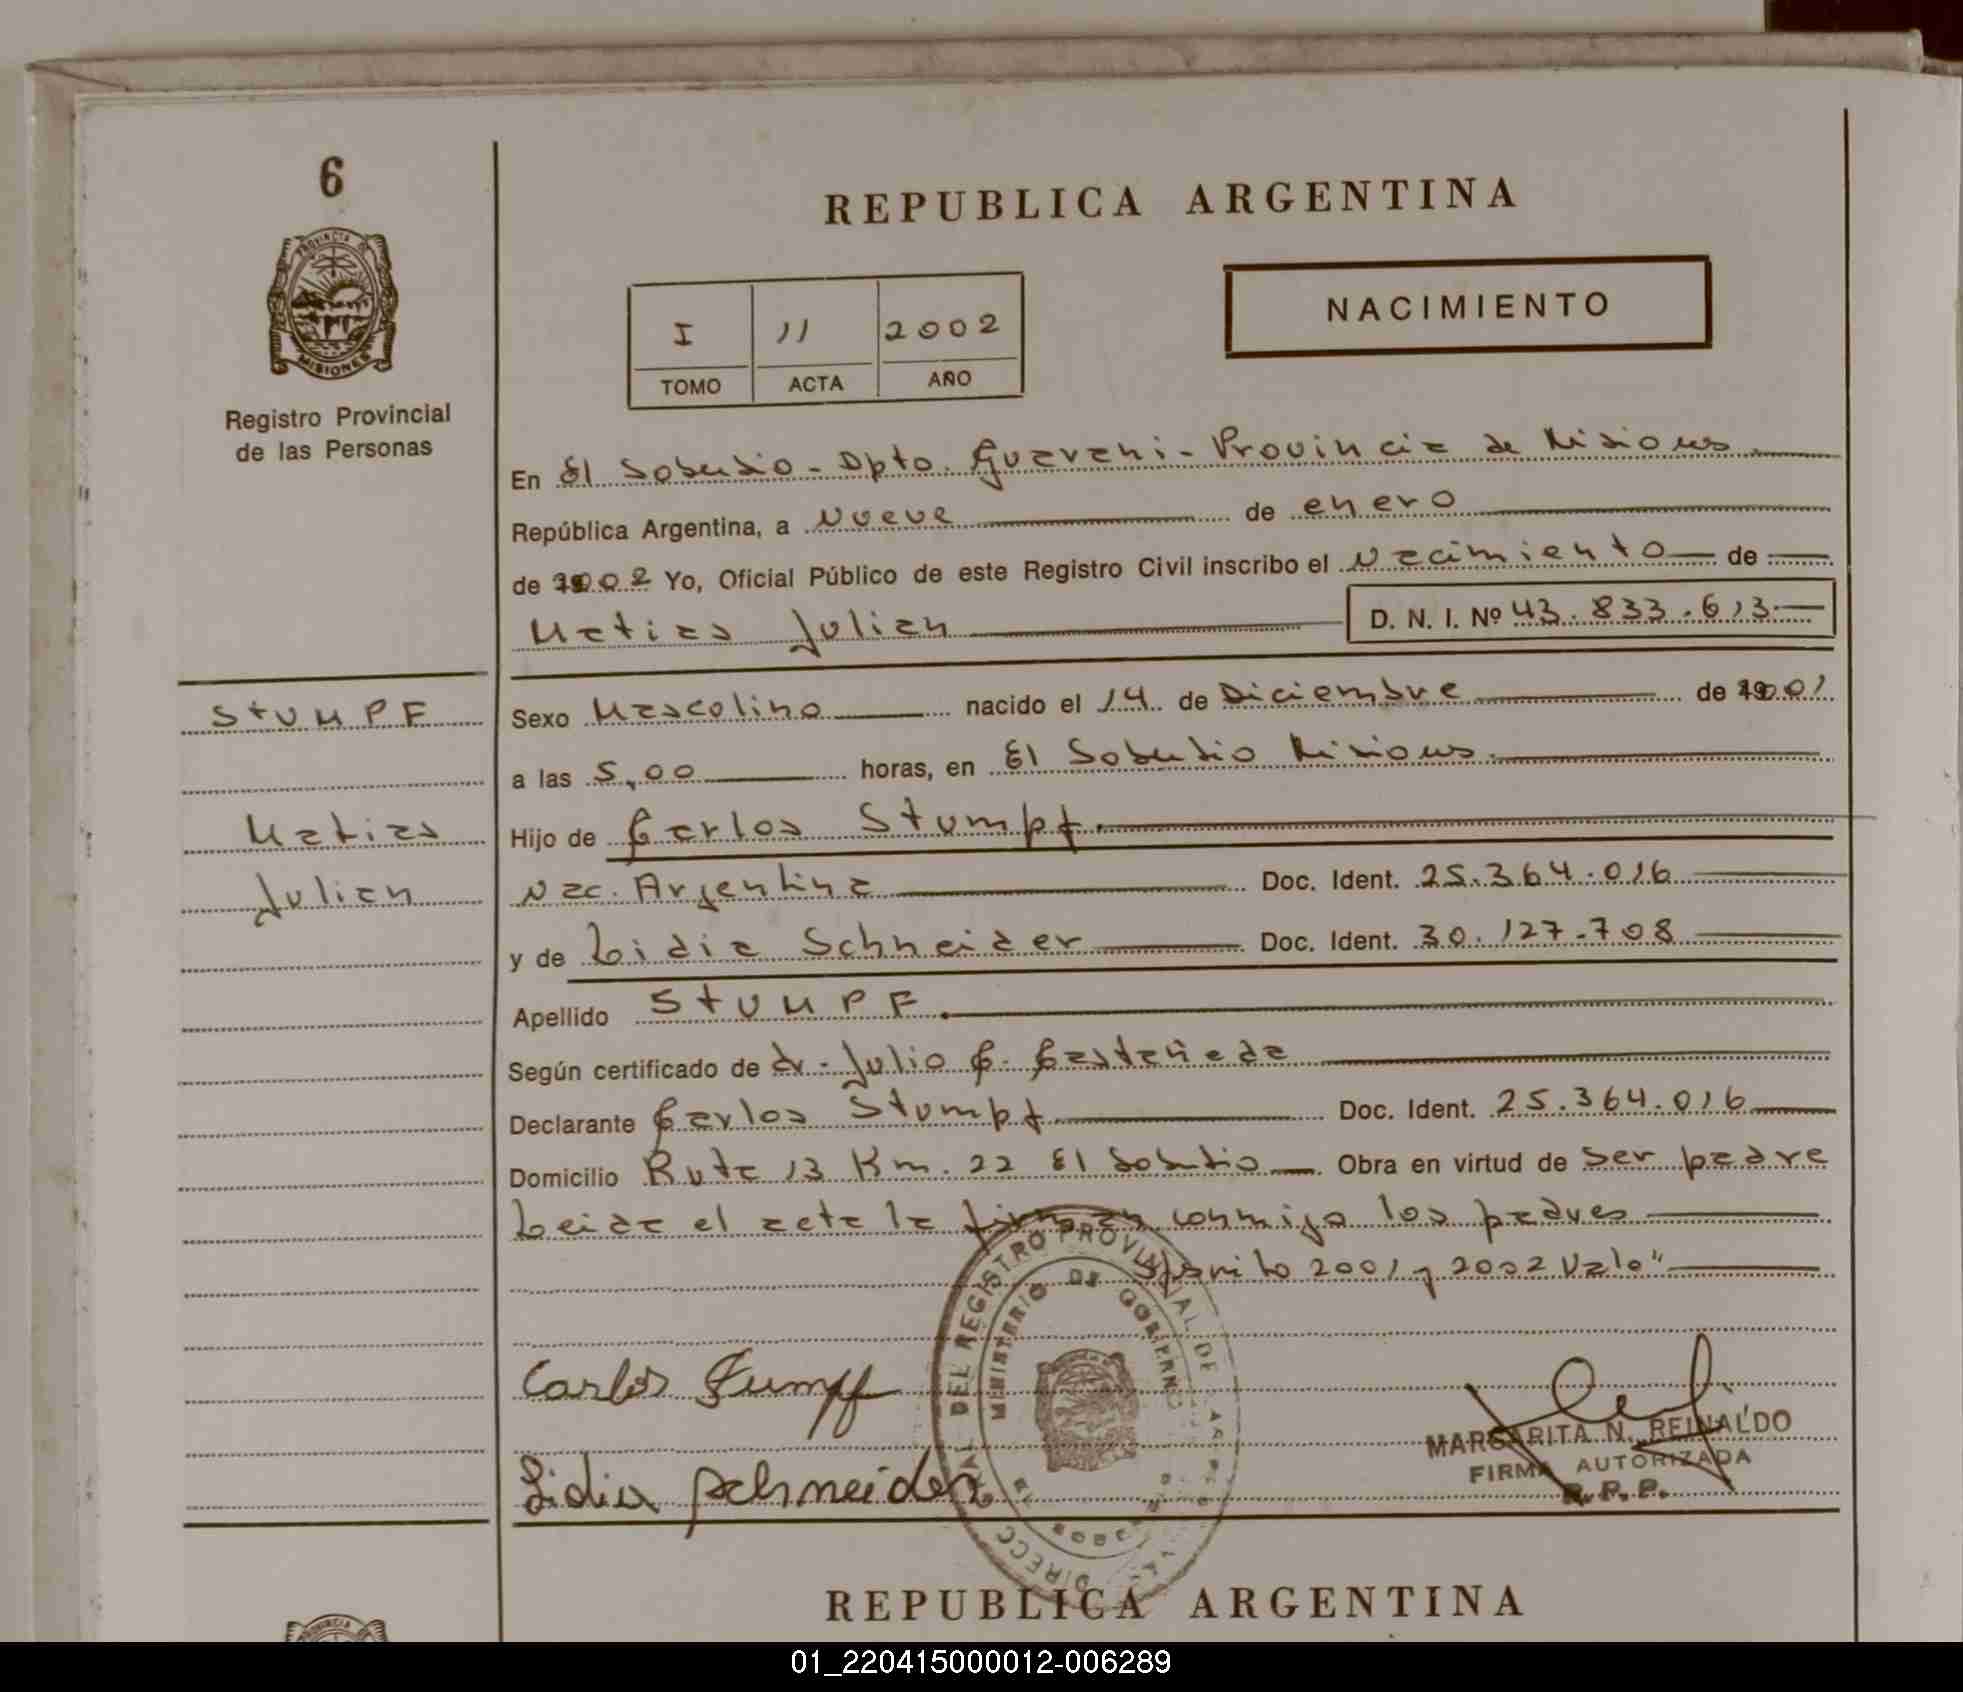 6
REPUBLICA ARGENTINA
PROVINCIA DE
MISIONES
NACIMIENTO
I 11 2002
TOMO ACTA AÑO
Registro Provincial
de las Personas
En El Soberbio - Dpto. Guarani - Provincia de Misiones
República Argentina, a Nueve de enero
de 2002 Yo, Oficial Público de este Registro Civil inscribo el Nacimiento de
Matias Julian D. N. I. Nº 43.833.613
STUMPF
Sexo Masculino nacido el 14 de Diciembre de 2001
a las 5,00 horas, en El Soberbio Misiones
Matias
Hijo de Carlos Stumpf
Julian
Nac. Argentina Doc. Ident. 25.364.016
y de Lidia Schneider Doc. Ident. 30.127.708
Apellido STUMPF
Según certificado de dr. Julio C. Castañeda
Declarante Carlos Stumpf Doc. Ident. 25.364.016
Domicilio Ruta 13 Km. 22 El Soberbio Obra en virtud de Ser padre
Leida el acta la firman conmigo los padres
2001 y 2002 Vale"
DEL REGISTRO PROVINCIAL DE
MINISTERIO DE GOBIERNO
Carlos Stumpf
MARGARITA N. REINALDO
FIRMA AUTORIZADA
R. P. P.
Lidia Schneider
REPUBLICA ARGENTINA
01_220415000012-006289